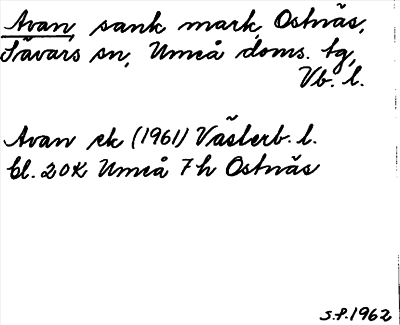 Avan, sank mark, Ostnäs,
Sävars sn, Umeå doms. tg,
Vb. l.
Avan ek (1961) Västerb. l.
bl. 20K Umeå 7h Ostnäs
S.P.1962